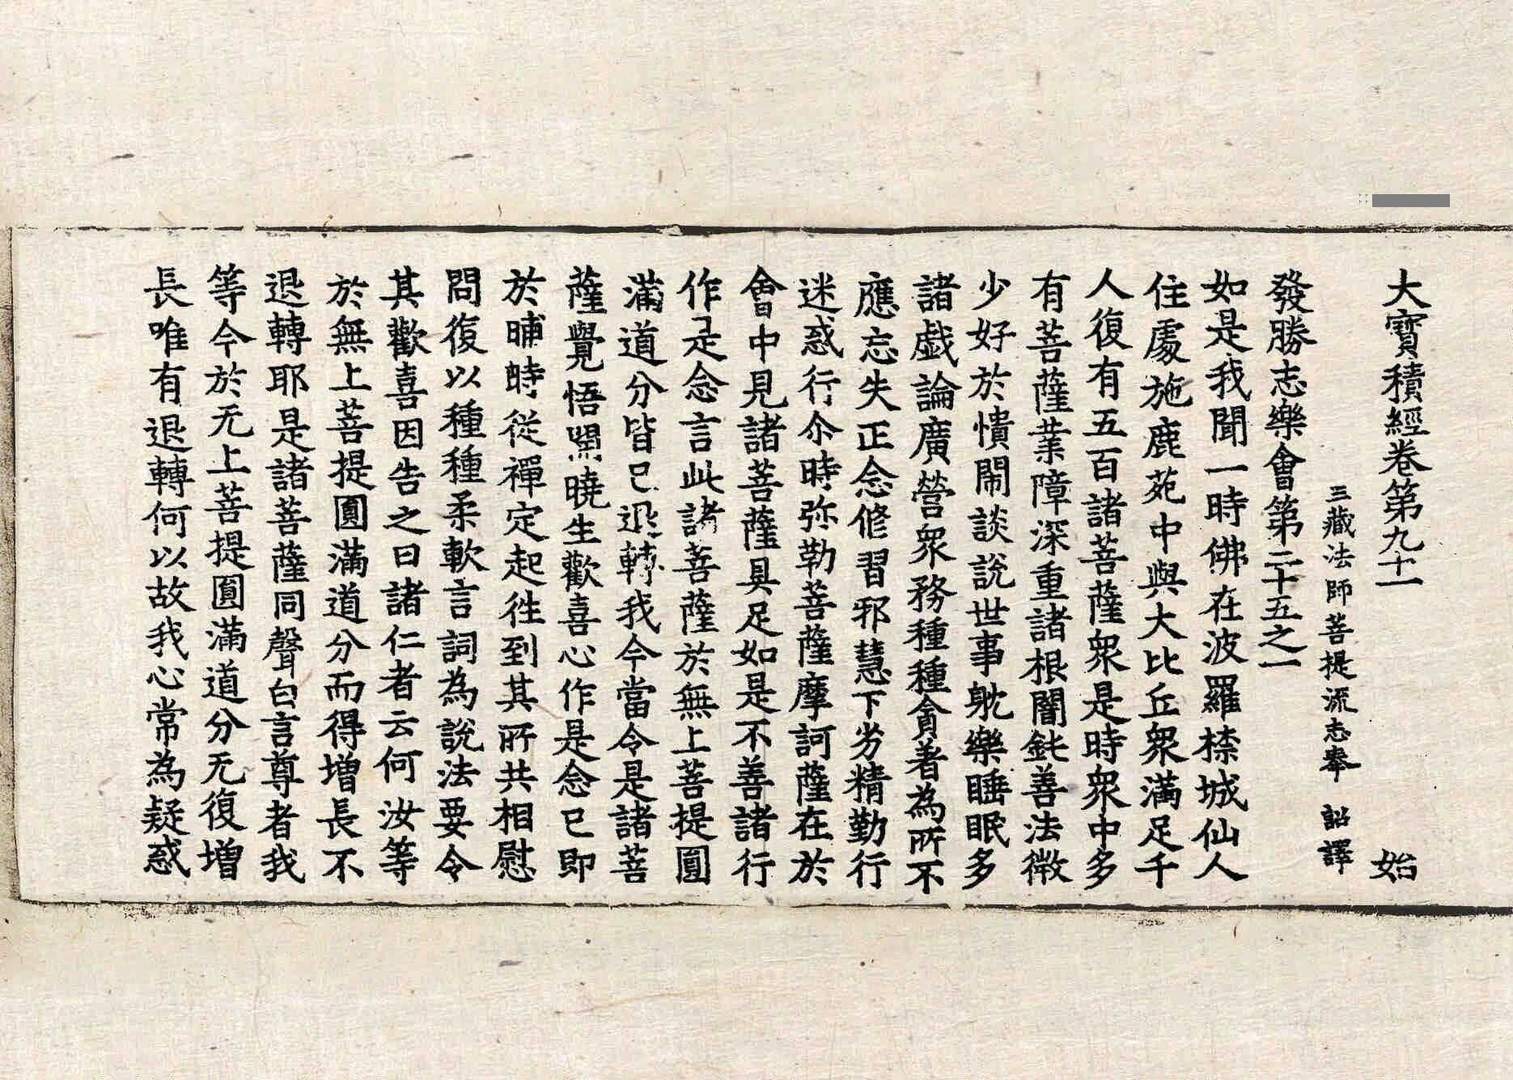 大寶積經卷第九十一 始
三藏法師菩提流志奉 詔譯
發勝志樂會第二十五之一
如是我聞一時佛在波羅㮈城仙人
住處施鹿苑中與大比丘衆滿足千
人復有五百諸菩薩衆是時衆中多
有菩薩業障深重諸根闇鈍善法微
少好於憒閙談說世事躭樂睡眠多
諸戲論廣營衆務種種貪著為所不
應忘失正念修習邪慧下劣精勤行
迷惑行尒時弥勒菩薩摩訶薩在於
會中見諸菩薩具足如是不善諸行
作是念言此諸菩薩於無上菩提圓
滿道分皆已退轉我今當令是諸菩
薩覺悟開曉生歡喜心作是念已即
於晡時從禪定起徃到其所共相慰
問復以種種柔軟言詞為說法要令
其歡喜因告之曰諸仁者云何汝等
於無上菩提圓滿道分而得增長不
退轉耶是諸菩薩同聲白言尊者我
等今於无上菩提圓滿道分无復增
長唯有退轉何以故我心常為疑惑